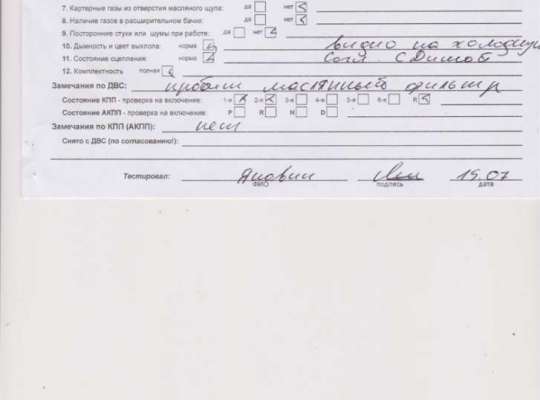 7. Картерные газы из отверстия масляного щупа: да нет
8. Наличие газов в расширительном бачке: да нет
9. Посторонние стуки или шумы при работе: да нет
10. Дымность и цвет выхлопа: норма видно на холодную
11. Состояние сцепления: норма
12. Комплектность полная
Замечания по ДВС: пробит маслянный фильтр
Состояние КПП - проверка на включение: 1-я 2-я 3-я 4-я 5-я 6-я R
Состояние АКПП - проверка на включение: P R N D
Замечания по КПП (АКПП): нет
Снято с ДВС (по согласованию!):
Тестировал: 19.07
ФИО подпись дата